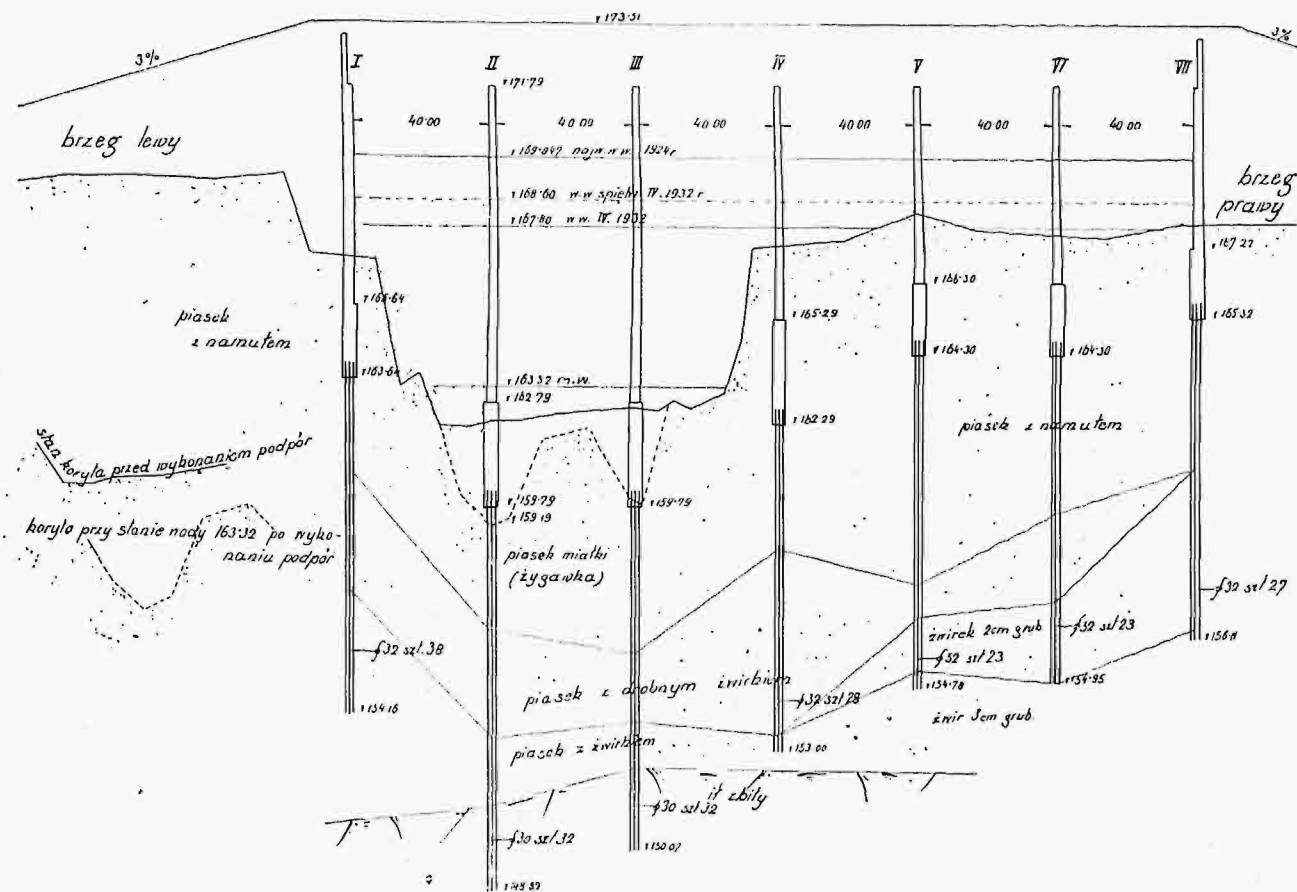 173·51
3%
3%
I
II
III
IV
V
VI
VII
171·79
40·00
40·00
40·00
40·00
40·00
40·00
brzeg lewy
169·847 najw. w.w. 1924 r
168·60 w.w. IV. 1932 r
167·80 w.w. IV. 1932
brzeg
prawy
167·22
166·30
165·64
165·29
165·32
piasek
z namułem
164·30
164·30
163·64
163·32 m.w.
162·79
162·29
piasek z namułem
stan koryta przed wykonaniem podpór
159·79
159·79
159·19
koryto przy stanie wody 163·32 po wyko-
naniu podpór
piasek miałki
(żygawka)
∮32 szt. 27
żwirek 2cm grub.
∮32 szt 23
156·11
∮32 szt. 38
∮32 szt 23
piasek z drobnym żwirkiem
∮32 szt 28
154·78
154·95
154·16
żwir 3cm grub.
piasek z żwirkiem
153·00
ił zbity
∮30 szt 32
∮30 szt 32
150·07